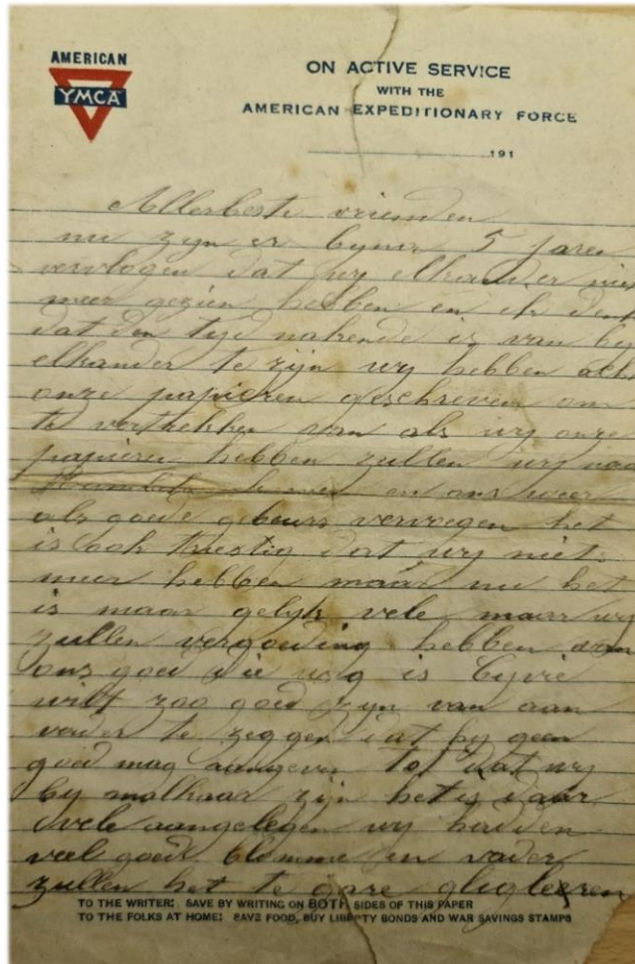 AMERICAN
YMCA
ON ACTIVE SERVICE
WITH THE
AMERICAN EXPEDITIONARY FORCE
191
Allerbeste vrienden
nu zyn er byna 5 jaren
vervlogen dat wy elkander nie
meer gezien hebben en ik denk
dat den tyd nakende is van by
elkander te zyn wy hebben acht
onze papieren geschreven om
te vertrekken van als wy onze
papieren hebben zullen wy naa
en ons weer
als goede gebeurs vervoegen het
is ook triestig dat wy niets
meer hebben maar nu het
is maar gelyk vele maar wy
zullen vergoeding hebben van
ons goed die weg is Cyrie
wilt zoo goed zyn van aan
vader te zeggen dat hy geen
goed mag aangeven tot dat wy
by malkaar zyn het is daar
vele aangelegen wy hadden
veel goed blomme en vader
zullen het te gare
TO THE WRITER: SAVE BY WRITING ON BOTH SIDES OF THIS PAPER
TO THE FOLKS AT HOME: SAVE FOOD, BUY LIBERTY BONDS AND WAR SAVINGS STAMPS